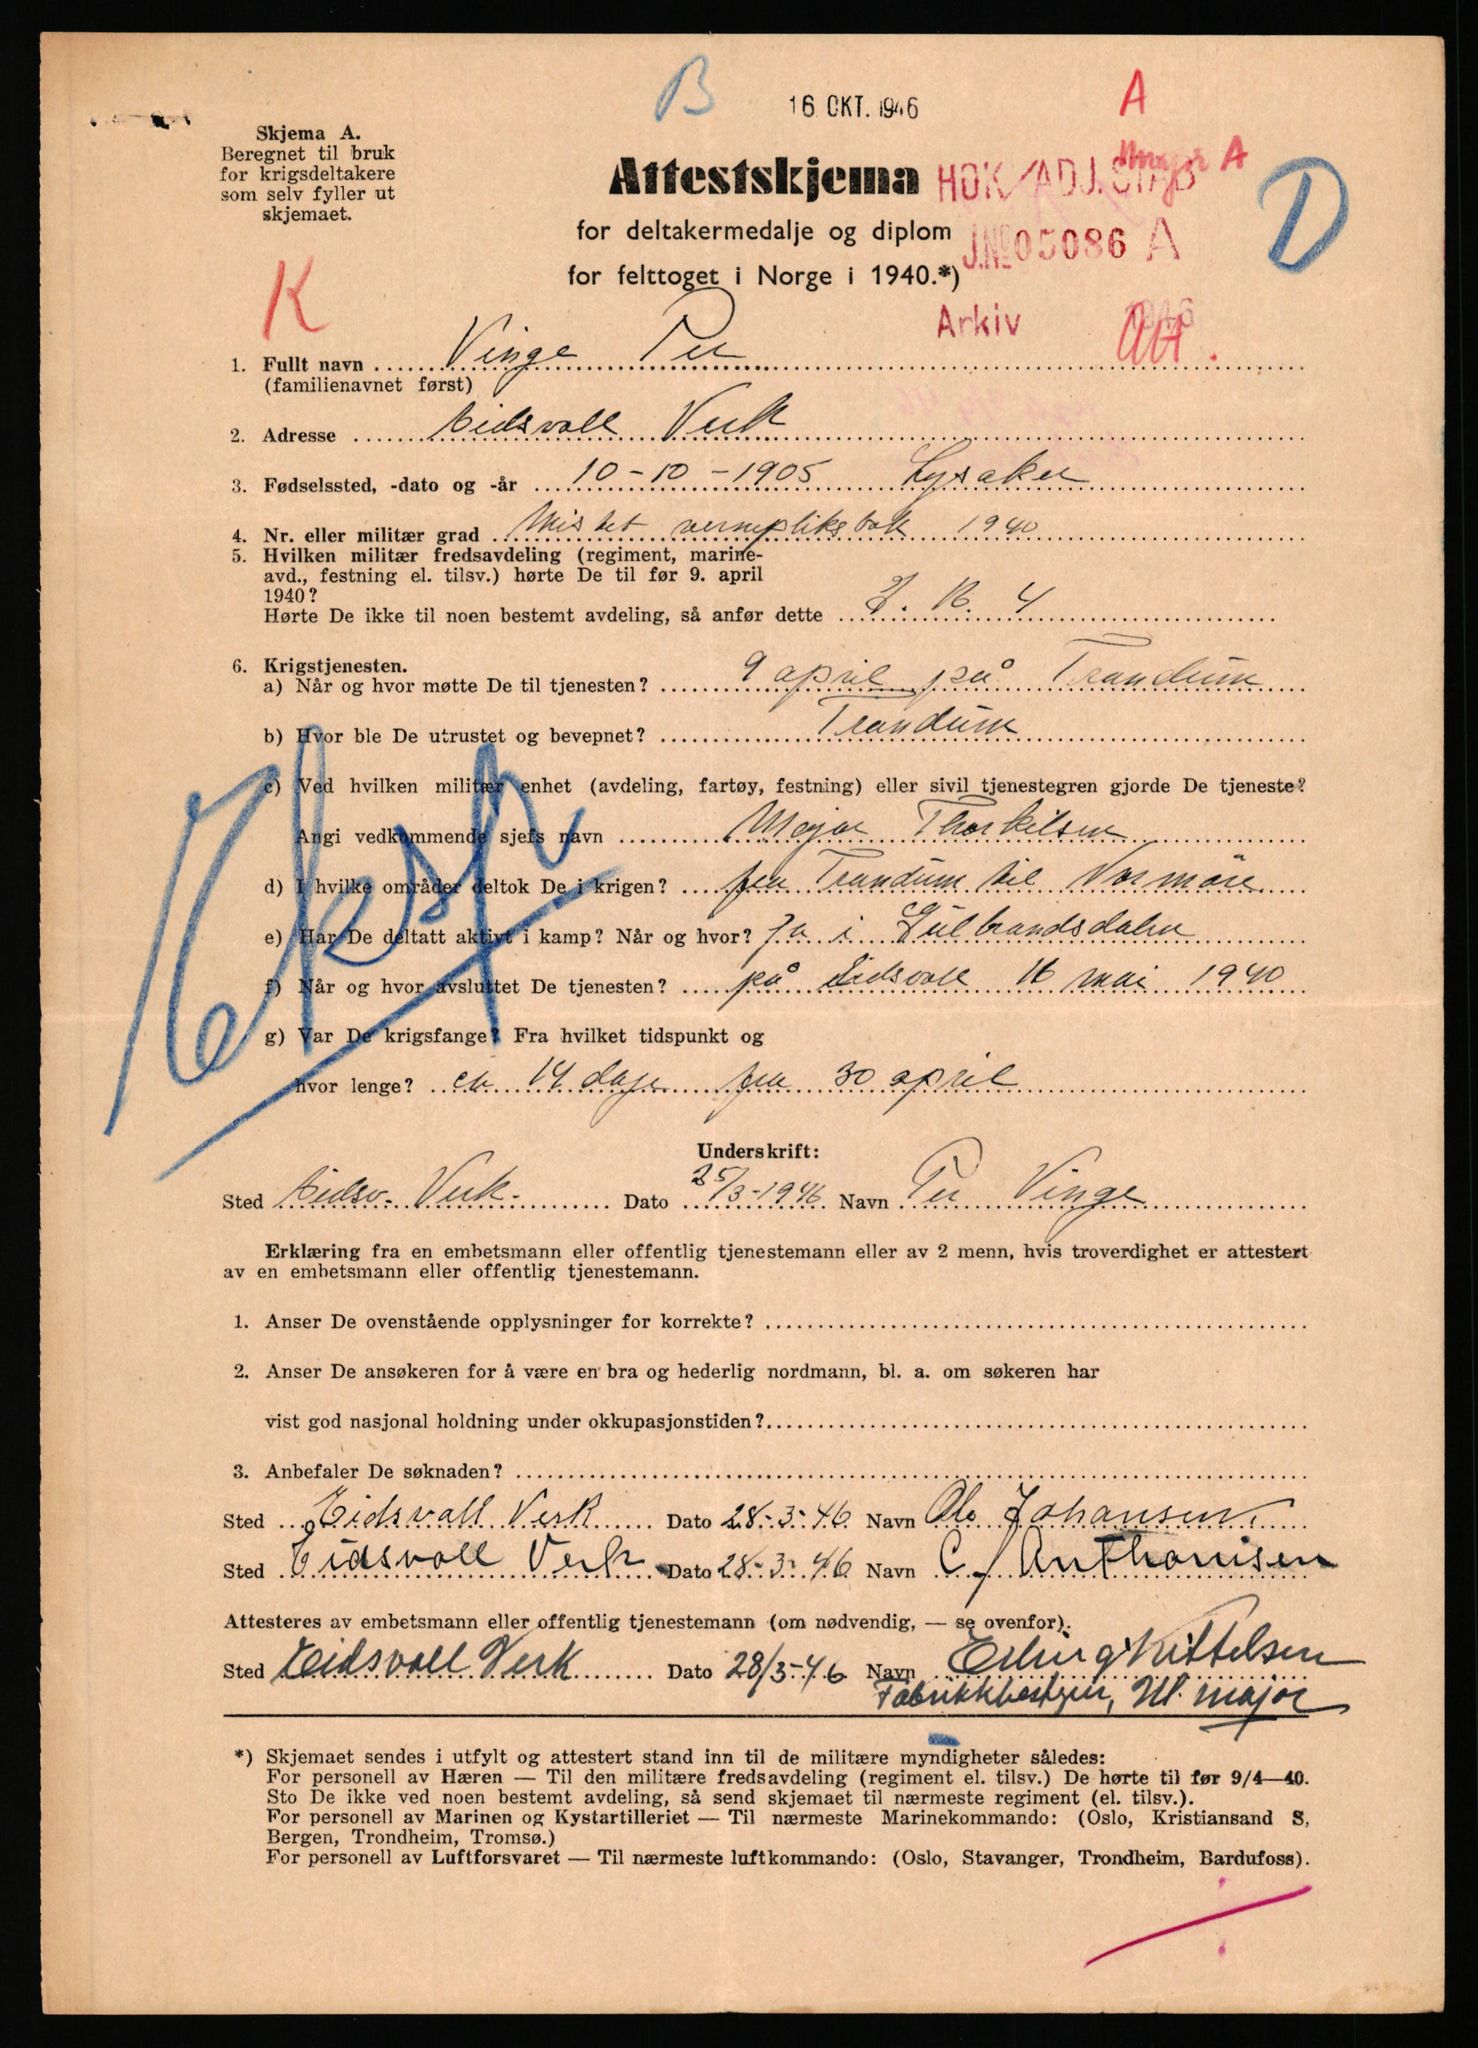 B
16 OKT. 1946
A
Skjema A.
Beregnet til bruk
for krigsdeltakere
som selv fyller ut
skjemaet.
Attestskjema
for deltakermedalje og diplom
for felttoget i Norge i 1940.*)
HOK/ADJ.STAB
A
J.No 05086 A
Arkiv 1946
D
K
1. Fullt navn Vinge Per
(familienavnet først)
2. Adresse Eidsvoll Verk
3. Fødselssted, -dato og -år 10-10-1905 Lysaker
4. Nr. eller militær grad Mistet vernepliksbok 1940
5. Hvilken militær fredsavdeling (regiment, marine-
avd., festning el. tilsv.) hørte De til før 9. april
1940?
Hørte De ikke til noen bestemt avdeling, så anfør dette I. R. 4
6. Krigstjenesten.
a) Når og hvor møtte De til tjenesten? 9 april på Trandum
b) Hvor ble De utrustet og bevepnet? Trandum
c) Ved hvilken militær enhet (avdeling, fartøy, festning) eller sivil tjenestegren gjorde De tjeneste?
Angi vedkommende sjefs navn Major Thorkilsen
d) I hvilke områder deltok De i krigen? fra Trandum til
e) Har De deltatt aktivt i kamp? Når og hvor? Ja i Gulbrandsdalen
f) Når og hvor avsluttet De tjenesten? på Eidsvoll 16 mai 1940
g) Var De krigsfange? Fra hvilket tidspunkt og
hvor lenge? ca 14 dage fra 30 april
Underskrift:
Sted Eidsv. Verk. Dato 25/3-1946 Navn Per Vinge
Erklæring fra en embetsmann eller offentlig tjenestemann eller av 2 menn, hvis troverdighet er attestert
av en embetsmann eller offentlig tjenestemann.
1. Anser De ovenstående opplysninger for korrekte?
2. Anser De ansøkeren for å være en bra og hederlig nordmann, bl. a. om søkeren har
vist god nasjonal holdning under okkupasjonstiden?
3. Anbefaler De søknaden?
Sted Eidsvoll Verk Dato 28-3-46 Navn Ole Johansen
Sted Eidsvoll Verk Dato 28-3-46 Navn C. Anthonisen
Attesteres av embetsmann eller offentlig tjenestemann (om nødvendig, — se ovenfor).
Sted Eidsvoll Verk Dato 28/3-46 Navn Erling Kittelsen
Fabrikkbestyrer, major
*) Skjemaet sendes i utfylt og attestert stand inn til de militære myndigheter således:
For personell av Hæren — Til den militære fredsavdeling (regiment el. tilsv.) De hørte til før 9/4—40.
Sto De ikke ved noen bestemt avdeling, så send skjemaet til nærmeste regiment (el. tilsv.).
For personell av Marinen og Kystartilleriet — Til nærmeste Marinekommando: (Oslo, Kristiansand S,
Bergen, Trondheim, Tromsø.)
For personell av Luftforsvaret — Til nærmeste luftkommando: (Oslo, Stavanger, Trondheim, Bardufoss).